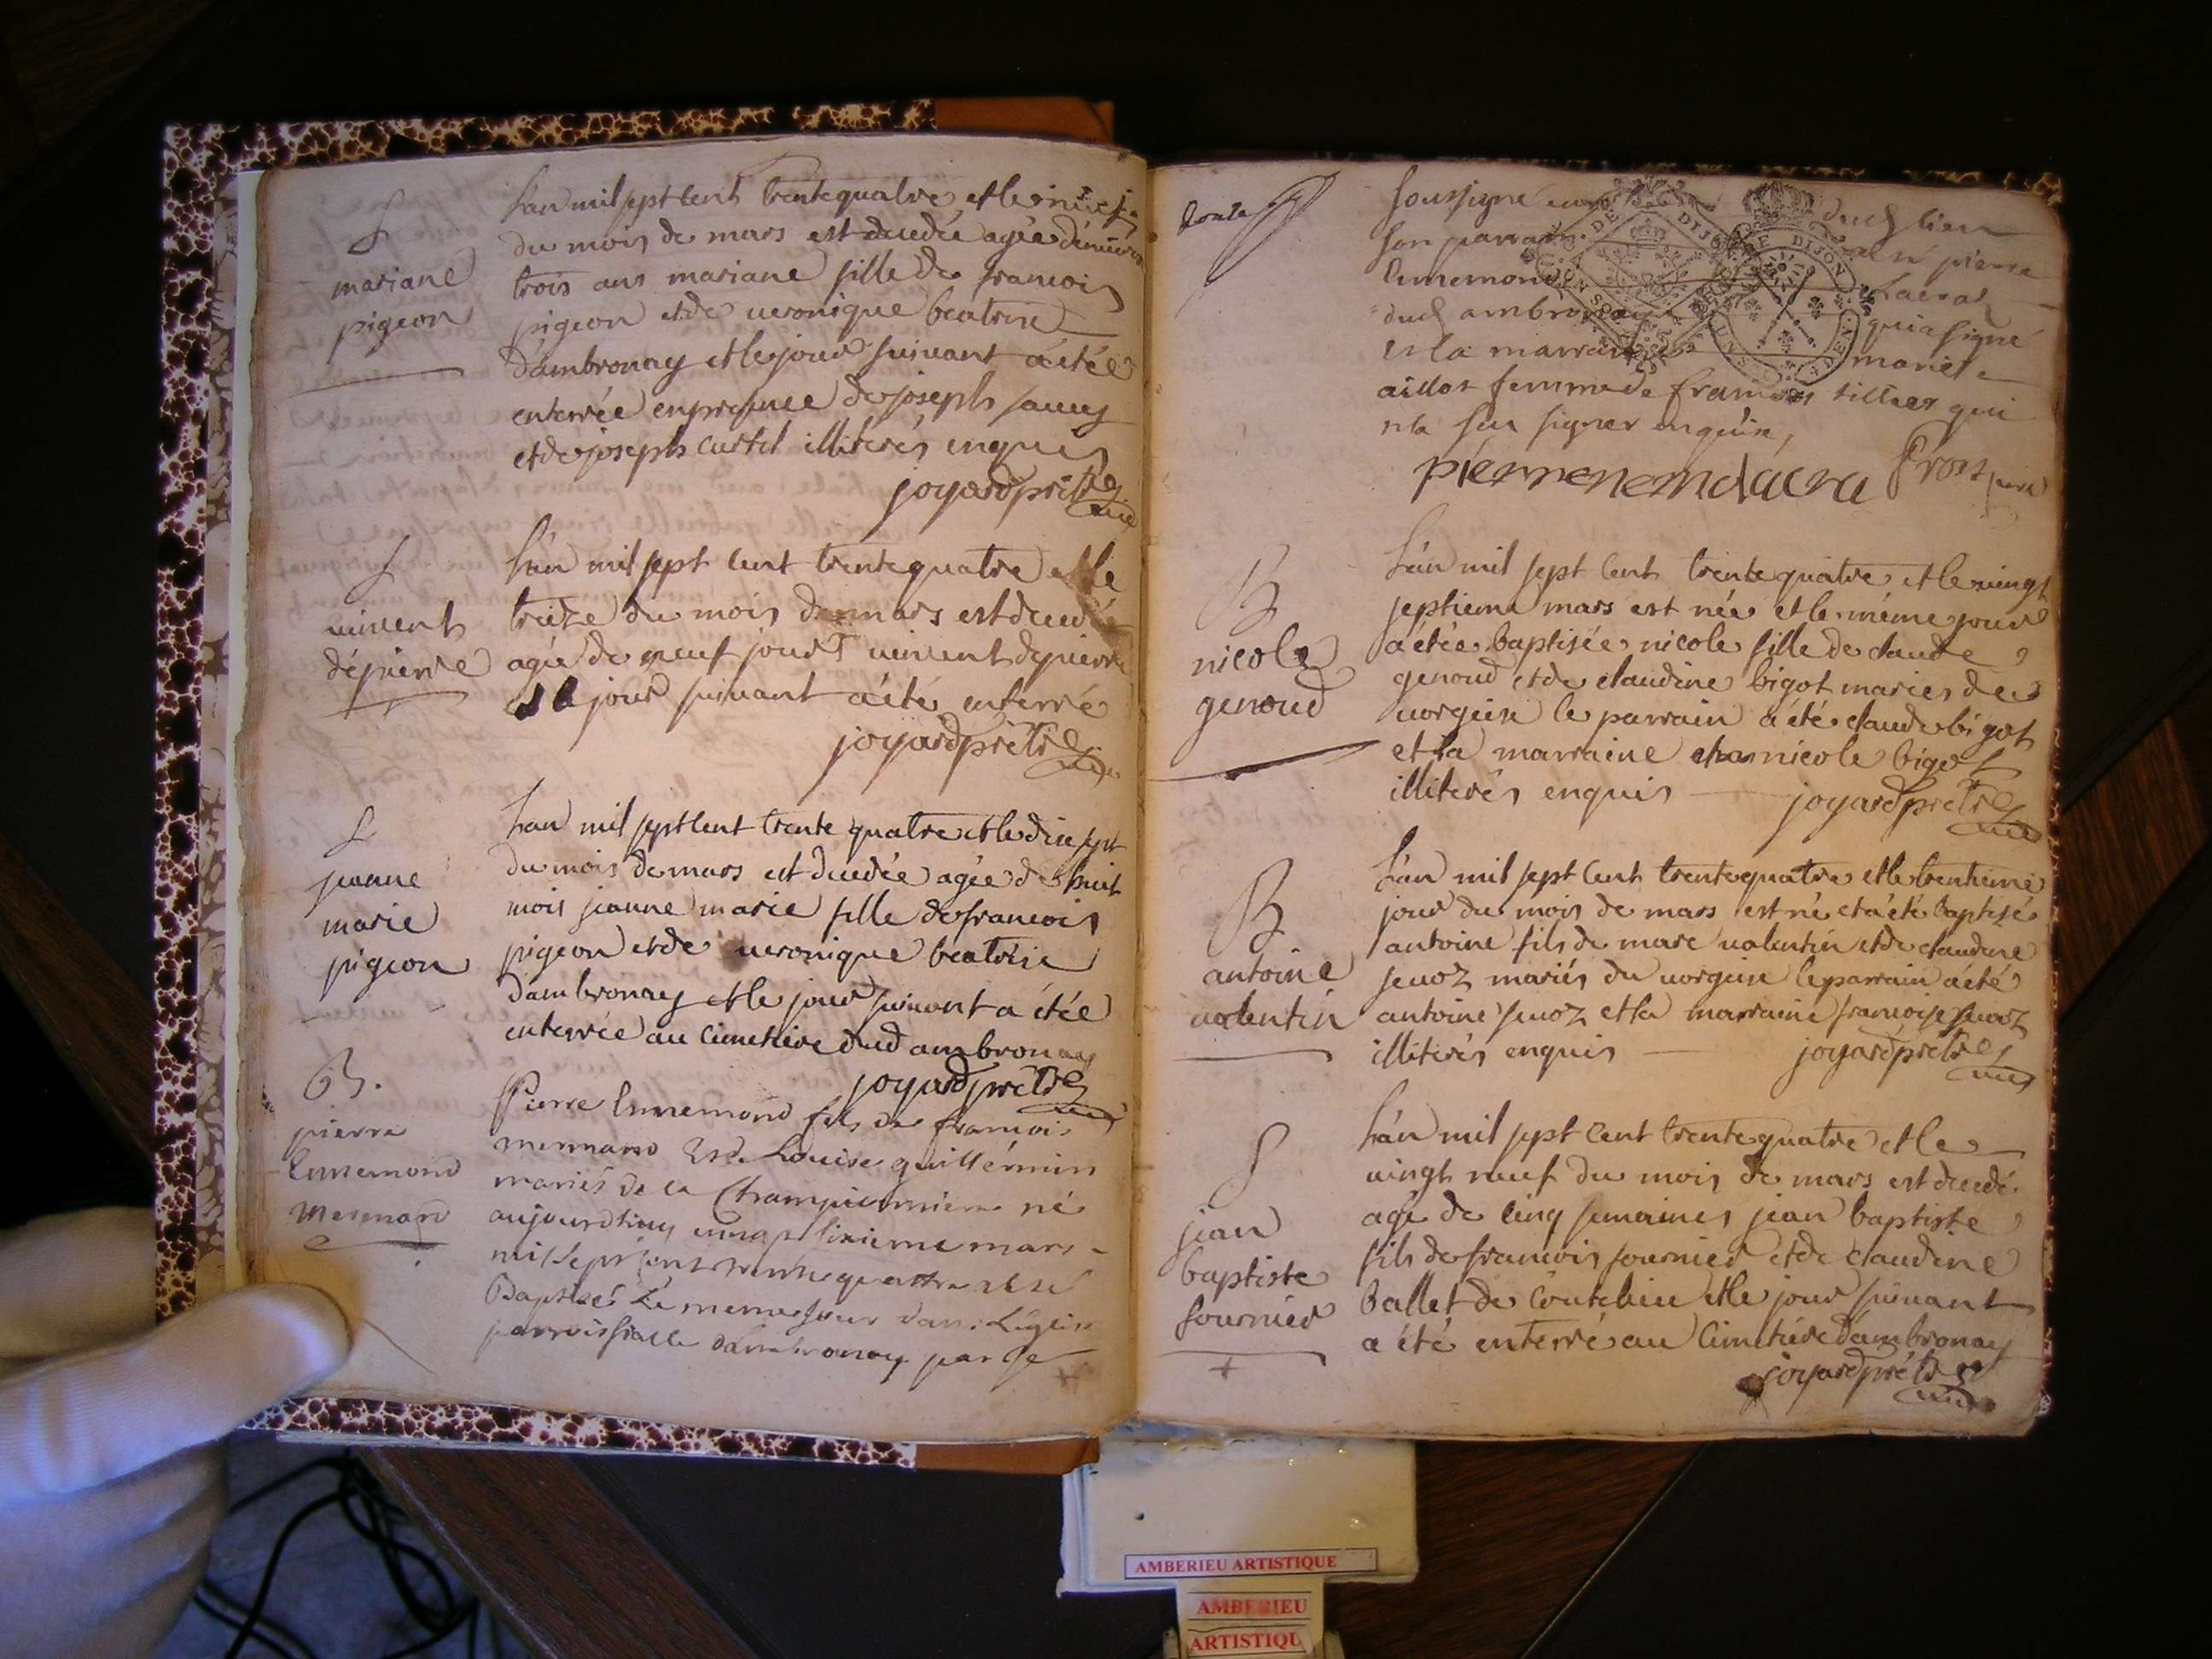 S
mariane
pigeon
L'an mil sept cent trente quatre et le
du mois de mars est decedée agée d'environ
trois ans mariane fille de francois
pigeon et de ueronique beatrixe
d'ambronay et le jour suiuant a été
enterrée en presence de joseph
et de joseph curtil illiterés enquis
joyard prêtre
S
uincent
dépierre
L'an mil sept cent trente quatre et le
treize du mois de mars est decedé
agé de neuf jours uincent depierre
jour suiuant a été enterré
joyard prêtre
S
jeanne
marie
pigeon
L'an mil sept cent trente quatre et le dix sept
du mois de mars est decedée agée de huit
mois jeanne marie fille de francois
pigeon et de ueronique beatrixe
d'ambronay et le jour suiuant a étée
enterrée au cimetiere dud ambronay
joyard prêtre
B.
pierre
Ennemond
mermand
Pierre Ennemond fils de francois
mermand et de Louise guillermin
mariés de la Championniere né
aujourdhuy uingt sixieme mars
mil sept cent trente quattre et été
Baptisé Le meme Jour dans L'église
parroissialle d'Ambronay par Je
douze
soussigné curé dud lieu
son parrain a été pierre
Ennemond Lacraz
dud ambronay qui a signé
et la marraine mariete
aillot femme de francois tillier qui
n'a seu signer enquise,
pierrenemdacra Frost curé
B
nicole
genoud
L'an mil sept cent trente quatre et le uingt
septieme mars est née et le même jour
a étée baptisée nicole fille de claude
genoud et de claudine bigot mariés de
uorgeise le parrain a été claude bigot
et la marraine nicole bigot
illiterés enquis joyard prêtre
B
antoine
ualentin
L'an mil sept cent trente quatre et le trentieme
jour du mois de mars est né et a été baptisé
antoine fils de marc ualentin et de claudine
seuoz mariés du uorgeise le parrain a été
antoine seuoz et la marraine francoise seuoz
illiterés enquis joyard prêtre
S
jean
baptiste
fournier
L'an mil sept cent trente quatre et le
uingt neuf du mois de mars est decedé
agé de cinq semaines jean baptiste
fils de francois fournier et de claudine
Ballet de Coutelieu et le jour suiuant
a été enterré au cimetiere d'ambronay
joyard prêtre
AMBERIEU ARTISTIQUE
AMBERIEU
ARTISTIQU